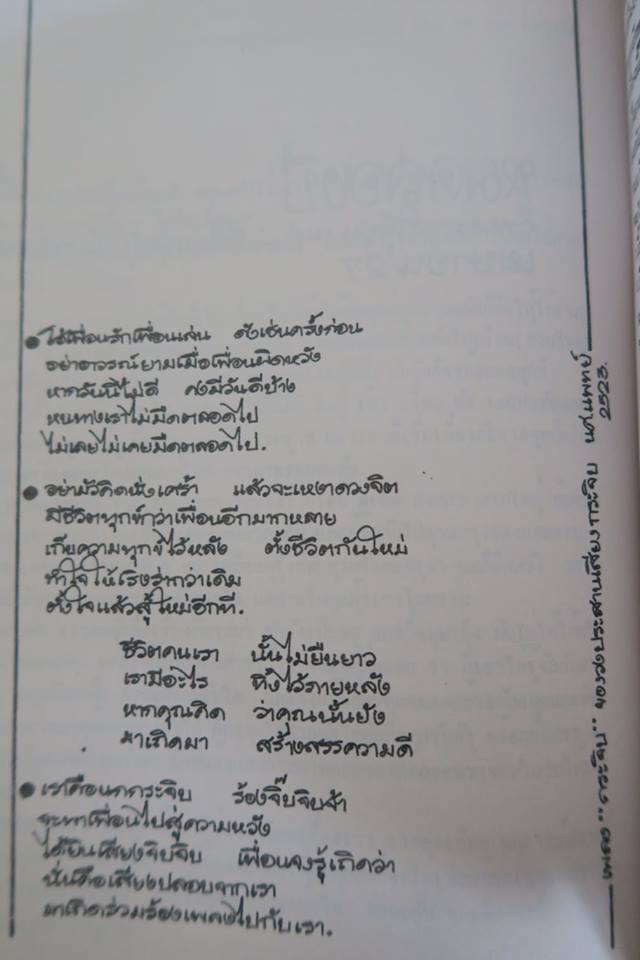 ● โอ้เพื่อนรักเพื่อนเล่น ดังเช่นครั้งก่อน
อย่าอาวรณ์ยามเมื่อเพื่อนผิดหวัง
หากวันนี้ไม่ดี คงมีวันดีบ้าง
หนทางเราไม่มืดตลอดไป
ไม่เลยไม่เคยมืดตลอดไป.
● อย่ามัวคิดนั่งเศร้า แล้วจะเหงาดวงจิต
มีชีวิตทุกข์กว่าเพื่อนอีกมากหลาย
เก็บความทุกข์ไว้หลัง ตั้งชีวิตกันใหม่
ทำใจให้เริงร่ากว่าเดิม
ตั้งใจแล้วสู้ใหม่อีกที.
ชีวิตคนเรา นั้นไม่ยืนยาว
เรามีอะไร ทิ้งไว้ภายหลัง
หากคุณคิด ว่าคุณนั้นยัง
มาเถิดมา สร้างสรรความดี
● เราคือนกกระจิบ ร้องจิ๊บจิบจ้า
จะพาเพื่อนไปสู่ความหวัง
ได้ยินเสียงจิบจิบ เพื่อนจงรู้เถิดว่า
นั่นคือเสียงปลอบจากเรา
มาเถิดร่วมร้องเพลงไปกับเรา.
2523.